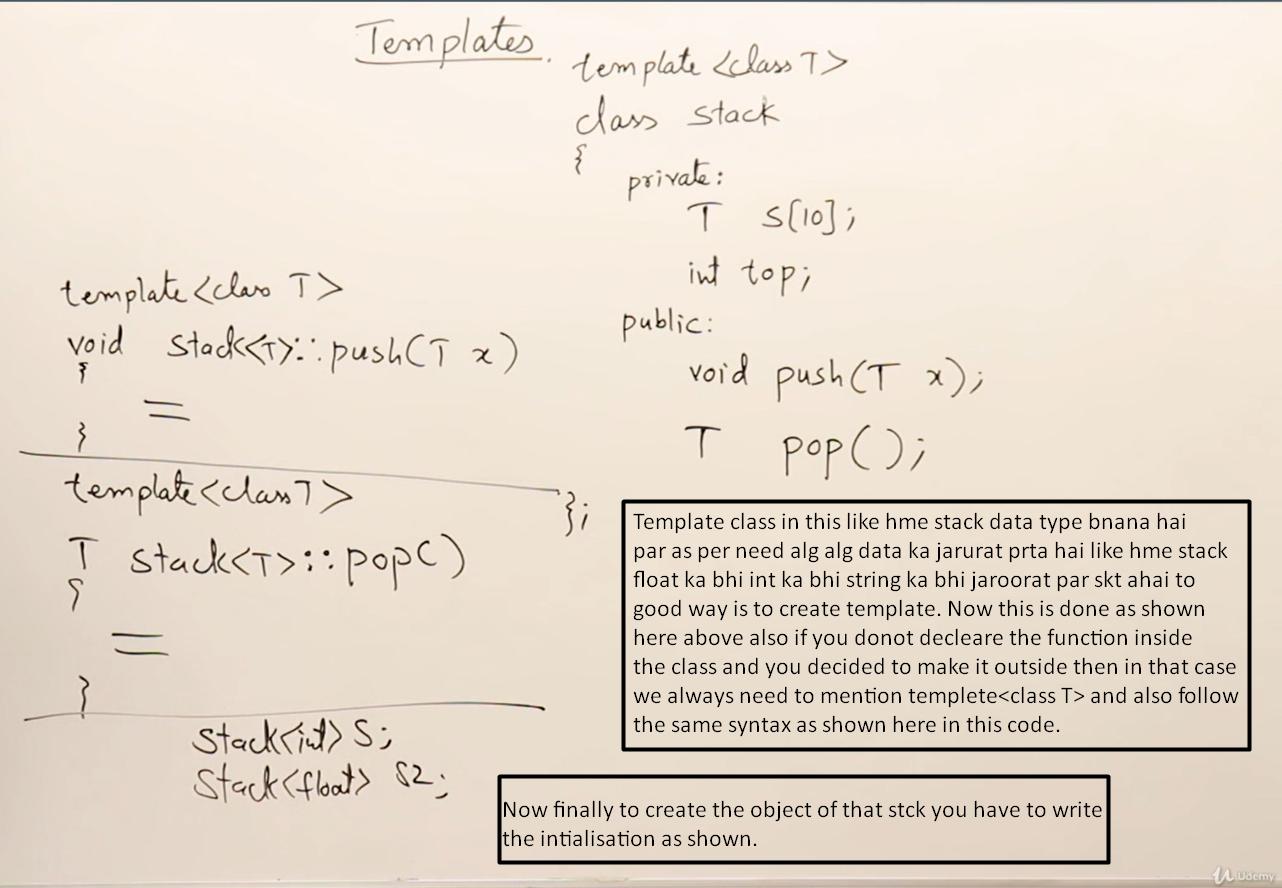 Templates.
template <class T>
class Stack
{
private:
T S[10];
int top;
public:
void push(T x);
T pop();
};
template<class T>
void Stack<T>::push(T x)
{
=
}
template<class T>
T Stack<T>::pop()
{
=
}
Stack<int> S;
Stack<float> S2;
Template class in this like hme stack data type bnana hai
par as per need alg alg data ka jarurat prta hai like hme stack
float ka bhi int ka bhi string ka bhi jaroorat par skt ahai to
good way is to create template. Now this is done as shown
here above also if you donot decleare the function inside
the class and you decided to make it outside then in that case
we always need to mention templete<class T> and also follow
the same syntax as shown here in this code.
Now finally to create the object of that stck you have to write
the intialisation as shown.
Udemy